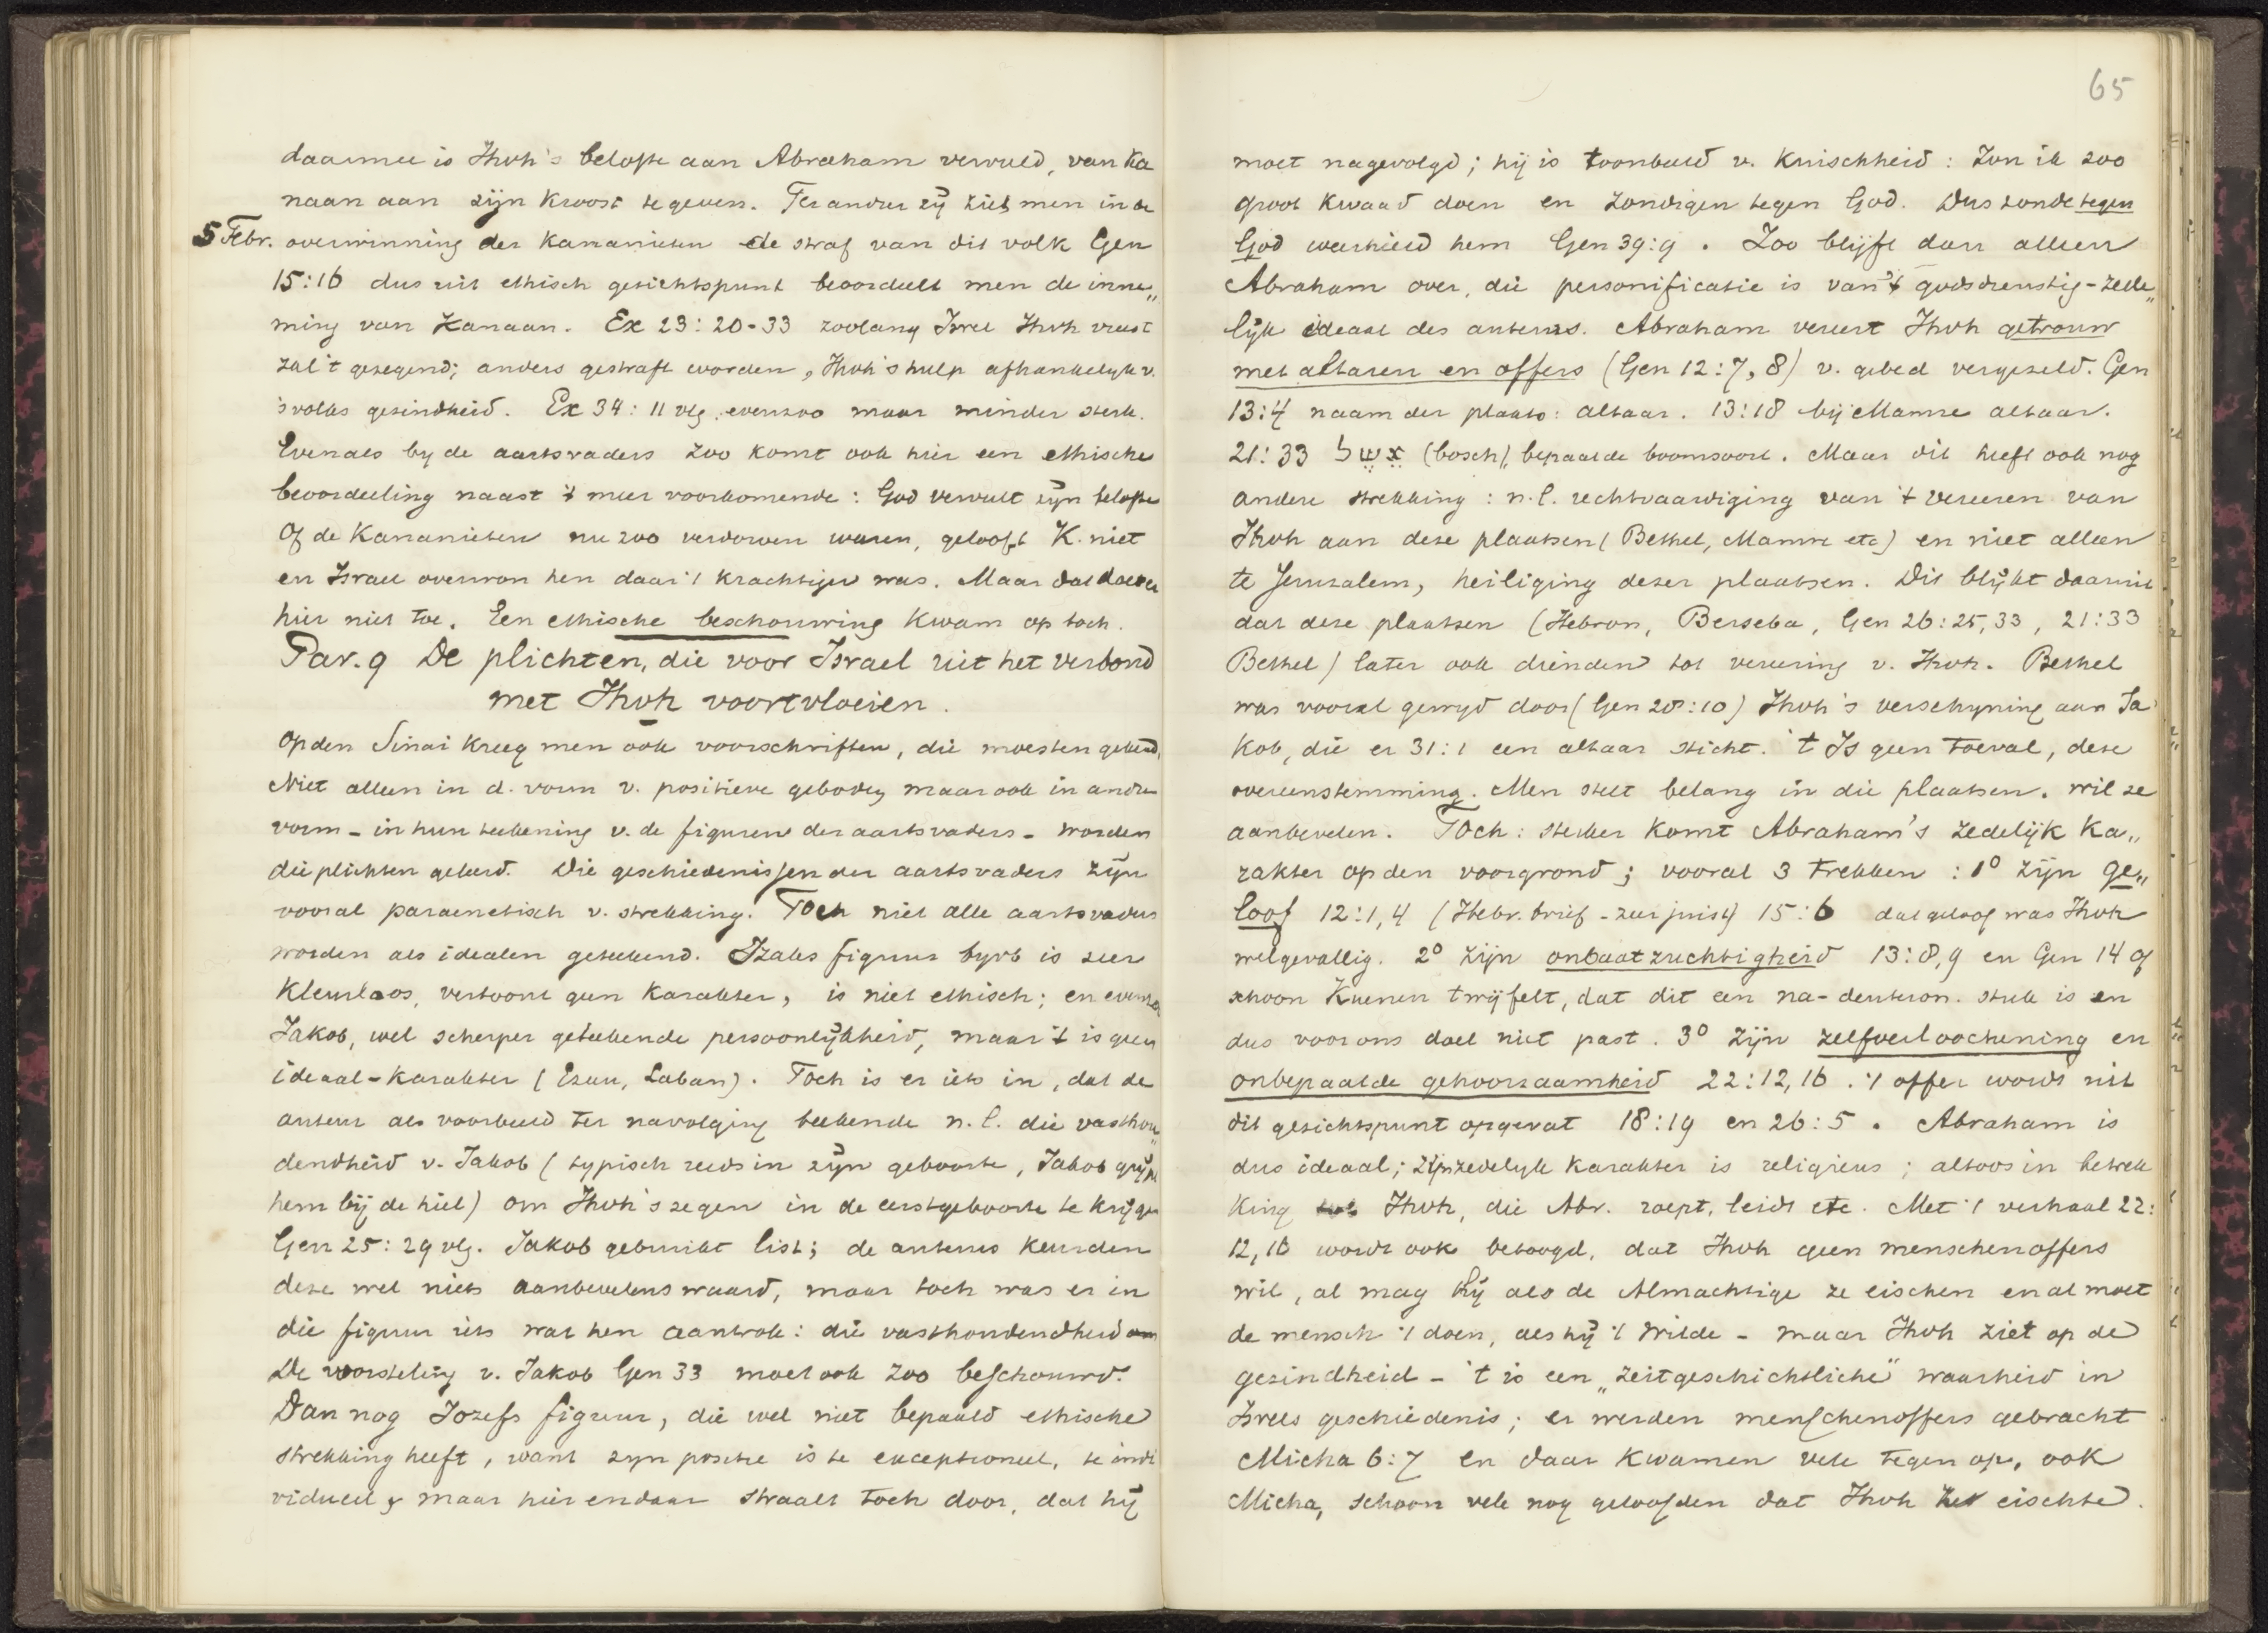 daarmee is Jhvh's belofte aan Abraham vervuld, van Ka
naan aan zijn kroost te geven. Ter ander zij ziet men in de
5 Febr. overwinning der Kananieten de straf van dit volk Gen
15:16 dus uit ethisch gezichtspunt beoordeelt men de inne„
ming van Kanaan. Ex 23:20-33 zoolang Isrel Jhvh vreest
zal 't gezegend; anders gestraft worden, Jhvh's hulp afhankelyk v.
's volks gezindheid. Ex 34:11 vlg. evenzoo maar minder sterk.
Evenals by de aartsvaders zoo komt ook hier een ethische
beoordeeling naast 't meer voorkomende: God vervult zijn belofte
Of de Kananieten nu zoo verdorven waren, gelooft K. niet
en Israel overwon hen daar 't krachtiger was. Maar dat doet er
hier niet toe. Een ethische beschouwing kwam op toch.
Par. 9 De plichten, die voor Israel uit het verbond
met Jhvh voortvloeien.
Op den Sinai kreeg men ook voorschriften, die moesten geleerd.
Niet alleen in d. vorm v. positieve geboden maar ook in andre
vorm - in hun teekening v. de figuren der aartsvaders - worden
die plichten geleerd. Die geschiedenissen der aartsvaders zijn
vooral paraenetisch v. strekking. Toch niet alle aartsvaders
worden als idealen geteekend. Izaks figuur byvb is zeer
kleurloos, vertoont geen karakter, is niet ethisch; en evenzoo
Jakob, wel scherper geteekende persoonlijkheid, maar 't is geen
ideaal-karakter (Ezau, Laban). Toch is er iets in, dat de
auteur als voorbeeld ter navolging teekende n.l. die vasthou„
dendheid v. Jakob (typisch reeds in zijn geboorte, Jakob grijpt
hem bij de hiel) om Jhvh's zegen in de eerstgeboorte te krijgen
Gen 25:29 vlg. Jakob gebruikt list; de auteurs keurden
deze wel niets aanbevelenswaard, maar toch was er in
die figuur iets wat hen aantrok: die vasthoudendheid
De worsteling v. Jakob Gen 33 moet ook zoo beschouwd.
Dan nog Jozefs figuur, die wel niet bepaald ethische
strekking heeft, want zyn positie is te exceptioneel, te indi
vidueel, maar hier en daar straalt toch door, dat hij
65
moet nagevolgd; hij is toonbeeld v. kuischheid: Zou ik zoo
groot kwaad doen en zondigen tegen God. Dus zonde tegen
God weerhield hem Gen 39:9. Zoo blijft dan alleen
Abraham over, die personificatie is van 't godsdienstig-zede„
lijk ideaal des auteurs. Abraham vereert Jhvh getrouw
met altaren en offers (Gen 12:7, 8) v. gebed vergezeld. Gen
13:4 naam der plaats: altaar. 13:18 bij Mamre altaar.
21:33 אשל (bosch), bepaalde boomsoort. Maar dit heeft ook nog
andere strekking: n.l. rechtvaardiging van 't vereeren van
Jhvh aan deze plaatsen (Bethel, Mamre etc) en niet alleen
te Jeruzalem, heiliging dezer plaatsen. Dit blijkt daaruit
dat deze plaatsen (Hebron, Berseba, Gen 26:25,33, 21:33
Bethel) later ook dienden tot vereering v. Jhvh. Bethel
was vooral gewyd door (Gen 28:10) Jhvh's verschyning aan Ja
kob, die er 31:1 een altaar sticht. 't Is geen toeval, deze
overeenstemming. Men stelt belang in die plaatsen. wil ze
aanbevelen. Toch: sterker komt Abraham's zedelijk ka„
rakter op den voorgrond; vooral 3 trekken: 1° zijn ge„
loof 12:1,4 (Hebr. brief - zeer juist) 15:6 dat geloof was Jhvh
welgevallig. 2° zijn onbaatzuchtigheid 13:8,9 en Gen 14 of
schoon Kuenen twijfelt, dat dit een na-deuteron. stuk is en
dus voor ons doel niet past. 3° zijn zelfverloochening en
onbepaalde gehoorzaamheid 22:12,16. 't offer wordt uit
dit gezichtspunt opgevat 18:19 en 26:5. Abraham is
dus ideaal; zijn zedelyk karakter is religieus; altoos in betrek
king tot Jhvh, die Abr. roept, leidt etc. Met 't verhaal 22:
12,16 wordt ook betoogd, dat Jhvh geen menschenoffers
wil, al mag hij als de Almachtige ze eischen en al moet
de mensch 't doen, als hij 't wilde - maar Jhvh ziet op de
gezindheid - 't is een „zeitgeschichtliche" waarheid in
Isrels geschiedenis; er werden menschenoffers gebracht
Micha 6:7 en daar kwamen vele tegen op, ook
Micha, schoon vele nog geloofden dat Jhvh het eischte.